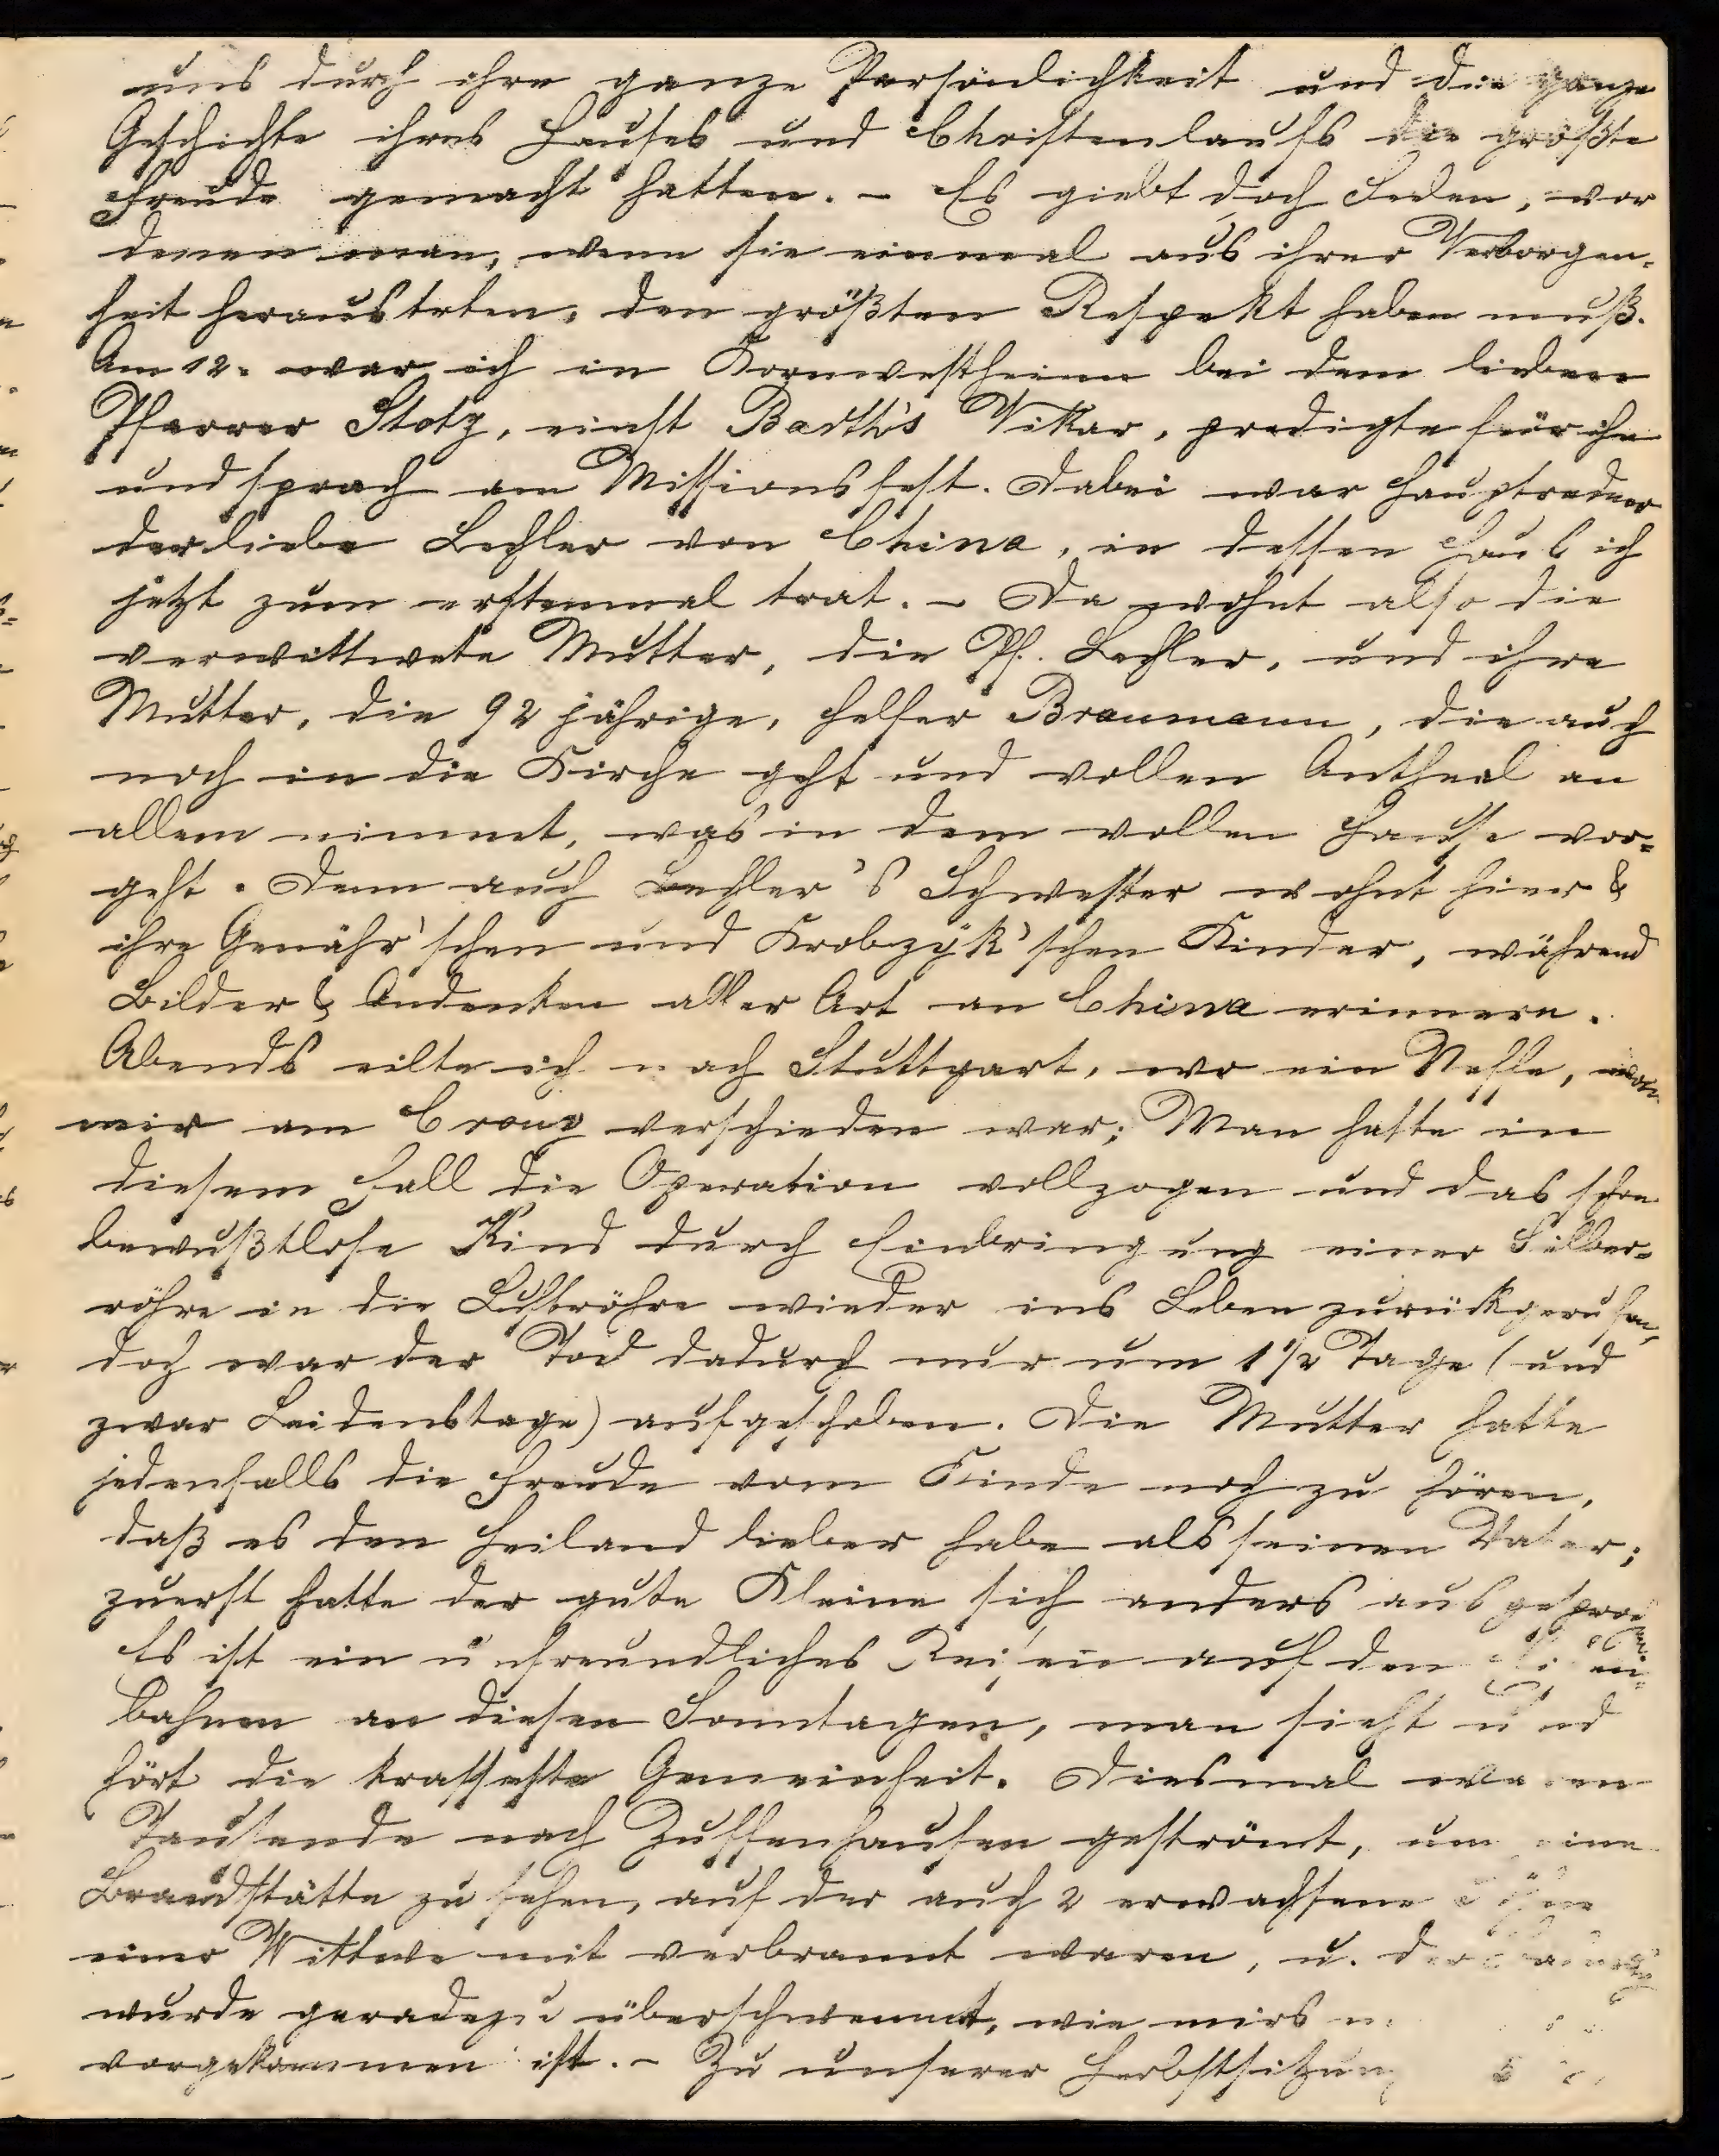 uns durch ihre ganze Persönlichkeit und die ganze
Geschichte ihres Hauses und Christenlaufs die größte
Freude gemacht hatten. – Es giebt doch Seelen, vor
denen man, wenn sie einmal aus ihrer Verborgen-
heit heraustreten, den größten Respekt haben muß.
Am 12. war ich in Kornwestheim bei dem lieben
Pfarrer Stotz, einst Barth's Vikar, predigte für ihn
und sprach am Missionsfest. Dabei war Hauptredner
der liebe Lechler von China, in dessen Haus ich
jetzt zum erstenmal trat. – Da wohnt also die
verwittwete Mutter, die Pf. Lechler, und ihre
Mutter, die 92 jährige, Helfer Braumann, die auch
noch in die Kirche geht und vollen Antheil an
allem nimmt, was in dem vollen Hause vor-
geht. Denn auch Lechler's Schwester wohnt hier &
ihre Genähr'schen und Krobzyk'schen Kinder, während
Bilder & Andenken aller Art an China erinnern.
Abends eilte ich nach Stuttgart, wo ein Neffe,
mir am Croup verschieden war; Man hatte in
diesem Fall die Operation vollzogen und das schon
bewußtlose Kind durch Einbringung einer Silber-
röhre in die Luftröhre wieder ins Leben zurückgerufen,
doch war der Tod dadurch nur um 1½ Tage (und
zwar Leidenstage) aufgeschoben. Die Mutter hatte
jedenfalls die Freude vom Kinde noch zu hören,
daß es den Heiland lieber habe als seinen Vater;
zuerst hatte der gute Kleine sich anders ausgesprochen
Es ist ein unfreundliches Reisen auf den Eisen-
bahnen an diesen Sonntagen, man sieht und
hört die krasseste Gemeinheit. Diesmal waren
Tausende nach Zuffenhausen geströmt, um eine
Brandstätte zu sehen, auf der auch 2 erwachsene Söhne
einer Wittwe mit verbrannt waren, u. der
wurde geradezu überschwemmt, wie mirs
vorgekommen ist. – Zu unserer Herbstsitzung